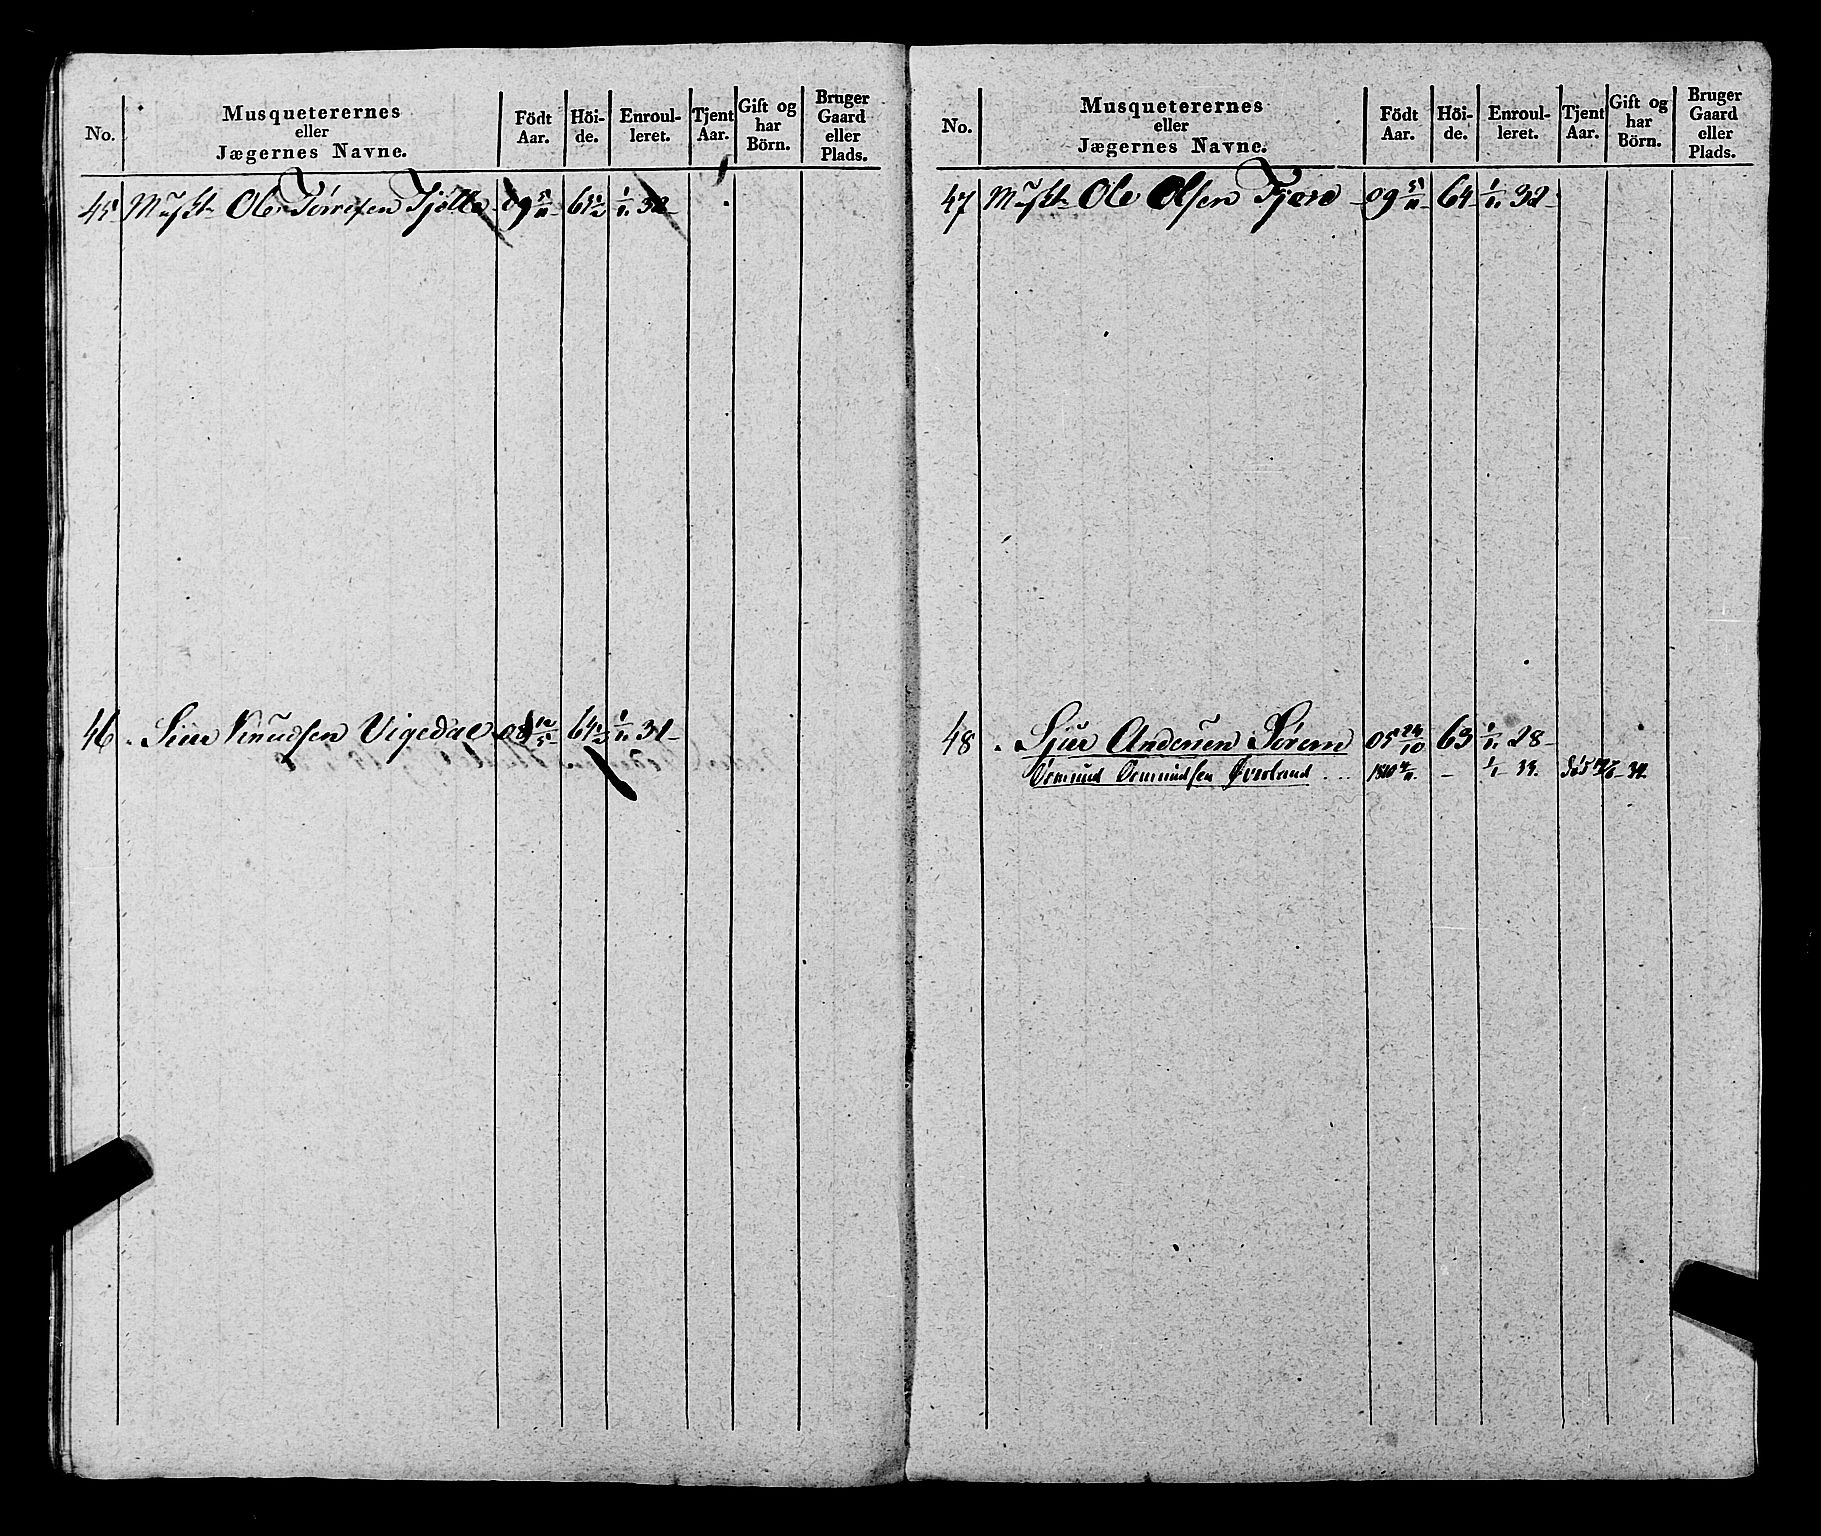 No.
Musqueterernes
eller
Jægernes Navne.
Födt
Aar.
Höi-
de.
Enroul-
leret.
Tjent
Aar.
Gift og
har
Börn.
Bruger
Gaard
eller
Plads.
45 Muskt Ole Tørresen Tjølle 09 5/11 63 1/2 1/11 32
46 Siur Knudsen Vigedal 08 64 1/2 1/11 31
No.
Musqueterernes
eller
Jægernes Navne.
Födt
Aar.
Höi-
de.
Enroul-
leret.
Tjent
Aar.
Gift og
har
Börn.
Bruger
Gaard
eller
Plads.
47 Muskt Ole Olsen Tjero 09 64 1/11 32
48 Sjur Andersen Sørem 05 24/10 63 1/11 28
Ormund Ormundsen Øverland 1810 - 1/1 33. død